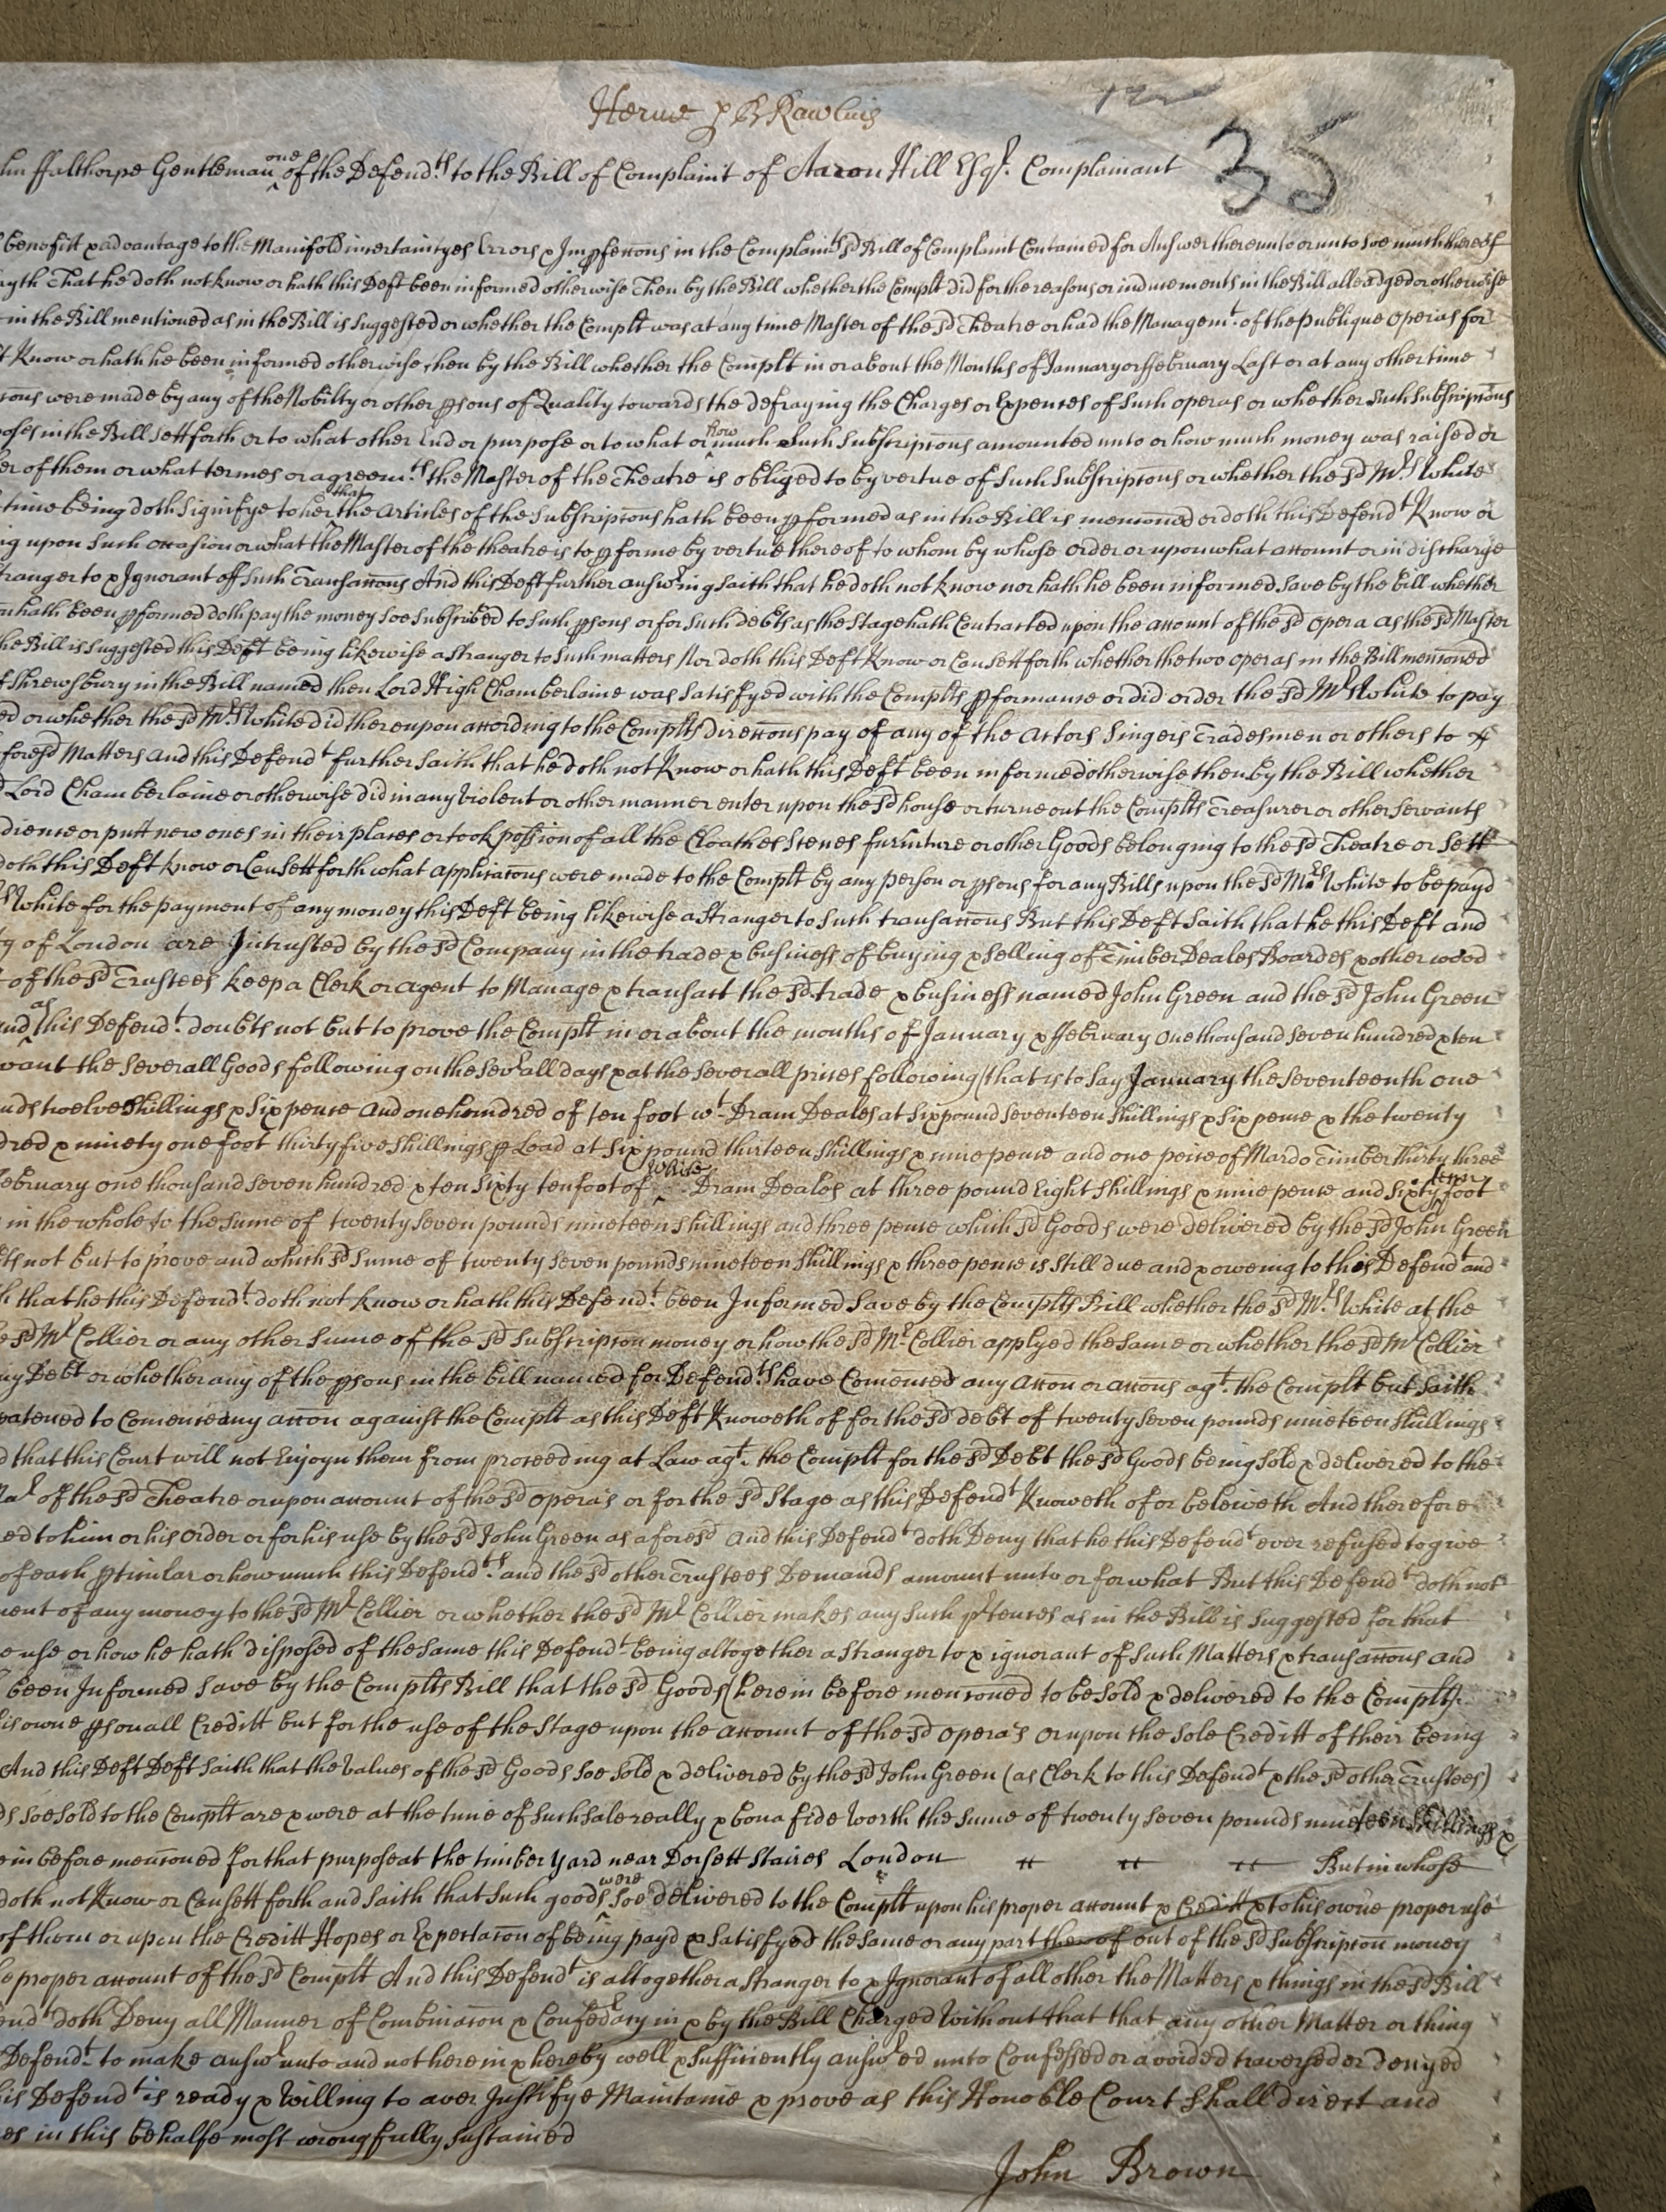 Herne p Br Rawlins
35
hn ffalthorpe Gentleman one of the Defend.ts to the Bill of Complaint of Aaron Hill Esqr. Complainant
benefitt & advantage to the Manifold incertaintyes Errors & Impfeccons in the Complain.ts sd Bill of Complaint Contained for Answer thereunto or unto soe much thereof
ayth That he doth not know or hath this Deft been informed otherwise Then by the Bill whether the Complt did for the reasons or inducements in the Bill alleadged or otherwise
in the Bill mentioned as in the Bill is suggested or whether the Complt was at any time Master of the sd Theatre or had the Managem.t of the publique operas for
t Know or hath he been informed otherwise then by the Bill whether the Complt in or about the Months of January or ffebruary Last or at any other time
cons were made by any of the Nobilty or other psons of Quality towards the defraying the Charges or Expences of such operas or whether such subscripcons
poses in the Bill sett forth or to what other End or purpose or to what or how much such subscripcons amounted unto or how much money was raised or
er of them or what termes or agreem.ts the Master of the Theatre is obliged to by vertue of such subscripcons or whether the sd Mrs White
time being doth signifye to her that the Articles of the subscripcons hath been pformed as in the Bill is menconed or doth this Defendt Know or
ng upon such occasion or what the Master of the theatre is to pforme by vertue thereof to whom by whose order or upon what account or in discharge
tranger to & Ignorant off such Transaccons And this Deft further answring saith that he doth not know nor hath he been informed save by the bill whether
n hath been pformed doth pay the money soe subscribed to such psons or for such debts as the stage hath Contracted upon the account of the sd opera as the sd Master
he Bill is suggested this Deft being likewise a stranger to such matters Nor doth this Deft Know or Can sett forth whether the two operas in the Bill menconed
f Shrewsbury in the Bill named then Lord High Chamberlaine was satisfyed with the Complts pformance or did order the sd Mrs White to pay
ed or whether the sd Mrs White did thereupon according to the Complts direccons pay of any of the actors singers Tradesmen or others to
foresd Matters And this Defendt further saith that he doth not Know or hath this Deft been informed otherwise then by the Bill whether
d Lord Chamberlaine or otherwise did in any violent or other manner enter upon the sd house or turne out the Complts Treasurer or other servants
dience or putt new ones in their places or took possion of all the Cloathes scenes furniture or other Goods belonging to the sd Theatre or sett
doth this Deft know or Can sett forth what applicacons were made to the Complt by any person or psons for any Bills upon the sd Mrs White to be payd
rs White for the payment of any money this Deft being likewise a stranger to such transaccons But this Deft saith that he this Deft and
ty of London are Intrusted by the sd Company in the trade & business of buying & selling of Timber Deales Boardes & other wood
of the sd Trustees keep a Clerk or agent to Manage & transact the sd trade & business named John Green and the sd John Green
and as this Defend.t doubts not but to prove the Complt in or about the months of January & ffebruary one thousand seven hundred & ten
vant the severall Goods following on the sevrall days & at the severall prices following (that is to say) January the seventeenth one
unds twelve shillings & six pence and one hundred of ten foot wt Dram Deales at six pound seventeen shillings & six pence & the twenty
dred & ninety one foot thirty five shillings p Load at six pound thirteen shillings & nine pence and one peice of Mardo Timber thirty three
ebruary one thousand seven hundred & ten sixty ten foot of white Dram Deales at three pound Eight shillings & nine pence and sixty tenn foot
in the whole to the sume of twenty seven pounds nineteen shillings and three pence which sd Goods were delivered by the sd John Green
ts not but to prove and which sd sume of twenty seven pounds nineteen shillings & three pence is still due and & oweing to this Defendt and
h that he this Defend.t doth not know or hath this Defend.t been Informed save by the Complts Bill whether the sd Mrs White at the
e sd Mr Collier or any other sume of the sd subscripcon money or how the sd Mr Collier applyed the same or whether the sd Mr Collier
ny Debt or whether any of the psons in the bill named for Defend.ts have Comenced any accon or accons agt. the Complt but saith
eatened to Comence any accon against the Complt as this Deft Knoweth of for the sd debt of twenty seven pounds nineteen shillings
d that this Court will not Enjoyn them from proceeding at Law agt. the Complt for the sd Debt the sd Goods being sold & delivered to the
of the sd Theatre or upon account of the sd opera's or for the sd stage as this Defendt Knoweth of or beleiveth And therefore
ed to him or his order or for his use by the sd John Green as aforesd And this Defendt doth Deny that he this Defendt ever refused to give
of each pticular or how much this Defend.ts and the sd other Trustees Demands amount unto or for what But this Defendt doth not
ment of any money to the sd Mr Collier or whether the sd Mr Collier makes any such prtences as in the Bill is suggested for that
e use or how he hath disposed of the same this Defendt being altogether a stranger to & ignorant of such Matters & transaccons and
been Informed save by the Complts Bill that the sd Goods (herein before menconed to be sold & delivered to the Complt)
is owne psonall Creditt but for the use of the stage upon the account of the sd opera's or upon the sole Creditt of their being
And this Deft Deft saith that the values of the sd Goods soe sold & delivered by the sd John Green (as Clerk to this Defendt & the sd other Trustees)
ds soe sold to the Complt are & were at the time of such sale really & bona fide worth the sume of twenty seven pounds nineteen shillings &
ein before menconed for that purpose at the timber yard near Dorsett Staires London " " " But in whose
doth not Know or Can sett forth and saith that such goods were soe delivered to the Complt upon his proper account & Creditt & to his owne proper use
of them or upon the Creditt Hopes or Expectacon of being payd & satisfyed the same or any part thereof out of the sd subscripcon money
e proper account of the sd Complt And this Defendt is altogether a stranger to & Ignorant of all other the Matters & things in the sd Bill
endt doth Deny all Manner of Combinacon & Confedracy in & by the Bill Charged Without that that any other Matter or thing
Defend.t to make answr unto and not herein & hereby well & sufficiently answred unto Confessed or avoided traversed or denyed
his Defendt is ready & Willing to aver Justifye Maintaine & prove as this Honoble Court shall direct and
es in this behalfe most wrongfully sustained
John Brown